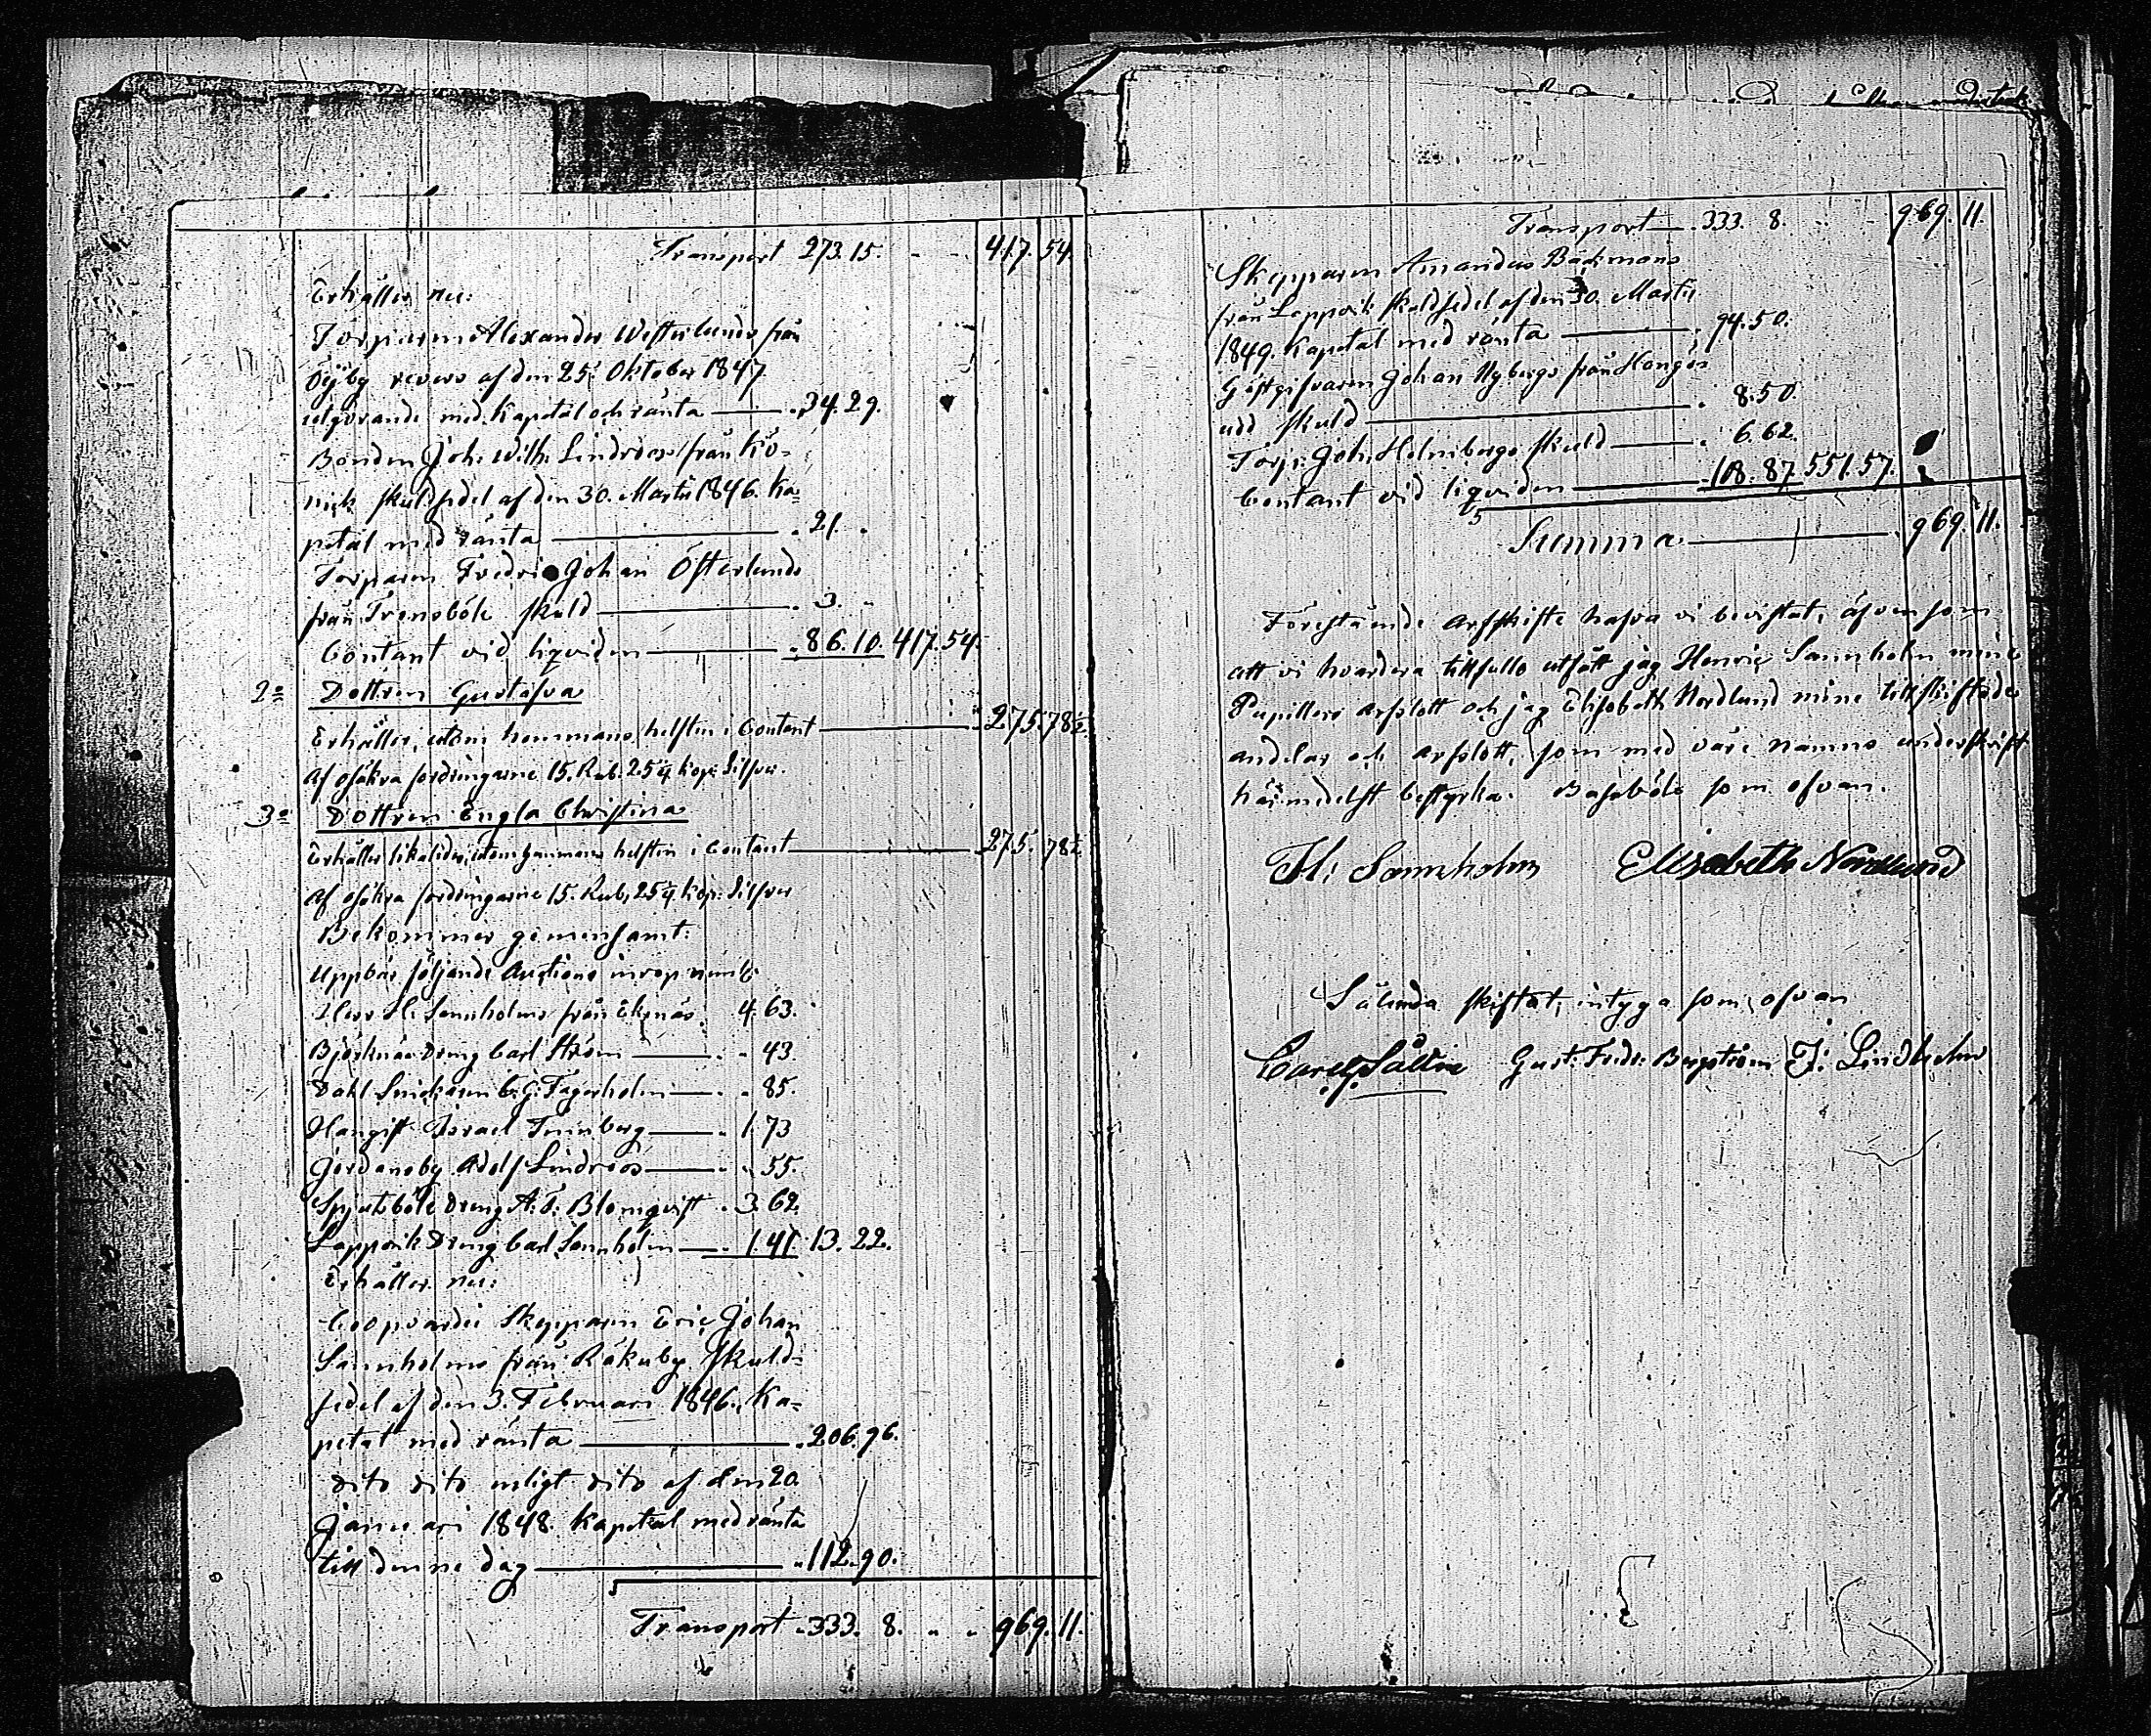 Transport 273. 15. " " 417. 54.
Erhåller nu:
Torparen Alexander Westerlunds från
Öyby revers af den 25. Oktober 1847
utgörande med Kapital och ränta — " 34. 29.
Bonden Joh. Wilh. Lindroos från Kö-
nick skuldsedel af den 30. Martii 1846. Ka-
pital med ränta — " 21. "
Torparen Fredric Johan Österlunds
från Trensböle skuld — " 3. "
Contant vid liqviden — " 86. 10. 417. 54.
2o Dottren Gustafva
Erhåller, utom hemmans helften i Contant — " 275. 78½
Af osäkra fordringarne 15. Rub. 25¼ Kop: Silfver.
3o Dottren Engla Christina
Erhåller likaledes, utom hemmans helften i Contant — " 275. 78½
Af osäkra fordringarne 15. Rub. 25¼ Kop: Silfver
Bekommer gemensamt:
Uppbär följande Auctions inrop neml:
Herr H: Sannholms från Ekenäs. 4. 63.
Björknäs Dreng Carl Ström — " " 43
Dahl Snickaren C. G: Fagerholm — " " 85.
Hangist Israel Tennberg — " 1. 73
Jordansby Adolf Lindroos — " " 55.
Spjutsböle Dreng A: F: Blomqvist " 3. 62.
Lappvik Dreng Carl Sannholm — " 1. 41 13. 22.
Erhåller nu:
Coopvardie Skepparen Eric Johan
Sannholms från Råkuby skuld-
sedel af den 3. Februari 1846. Ka-
pital med ränta — " 206. 96.
dito dito enligt dito af den 20.
Januari 1848. Kapital med ränta
till denne dag — " 112. 90.
Transport " 333. 8. " " 969. 11.
Transport — " 333. 8. " " 969. 11.
Skepparen Amandus Bäckmans
från Lappvik skuldsedel af den 30. Martii
1849. Kapital med ränta — " 94. 50.
Gästgifvaren Johan Nybergs från Hangö
udd skuld — " 8. 50.
Torp: Joh. Holmbergs skuld — " 6. 62.
Contant vid liqviden — " 108. 87. 551. 57.
Summa — " 969. 11.
Förestående Arfskifte hafva vi bevistat, äfvensom
att vi hvardera tillfullo utfått jag Henric Sannholm mine
Pupillers arfslott och jag Elisabeth Nordlund mine tillskiftade
andelar och arfslott, som med våre namns underskrift
härmedelst bestyrka. Bassböle som ofvan.
H: Sannholm Elisabeth Nordlund
Sålunda skiftat, intyga som ofvan
Carl G. Sållin Gust: Fredr: Bergström J: Lindholm